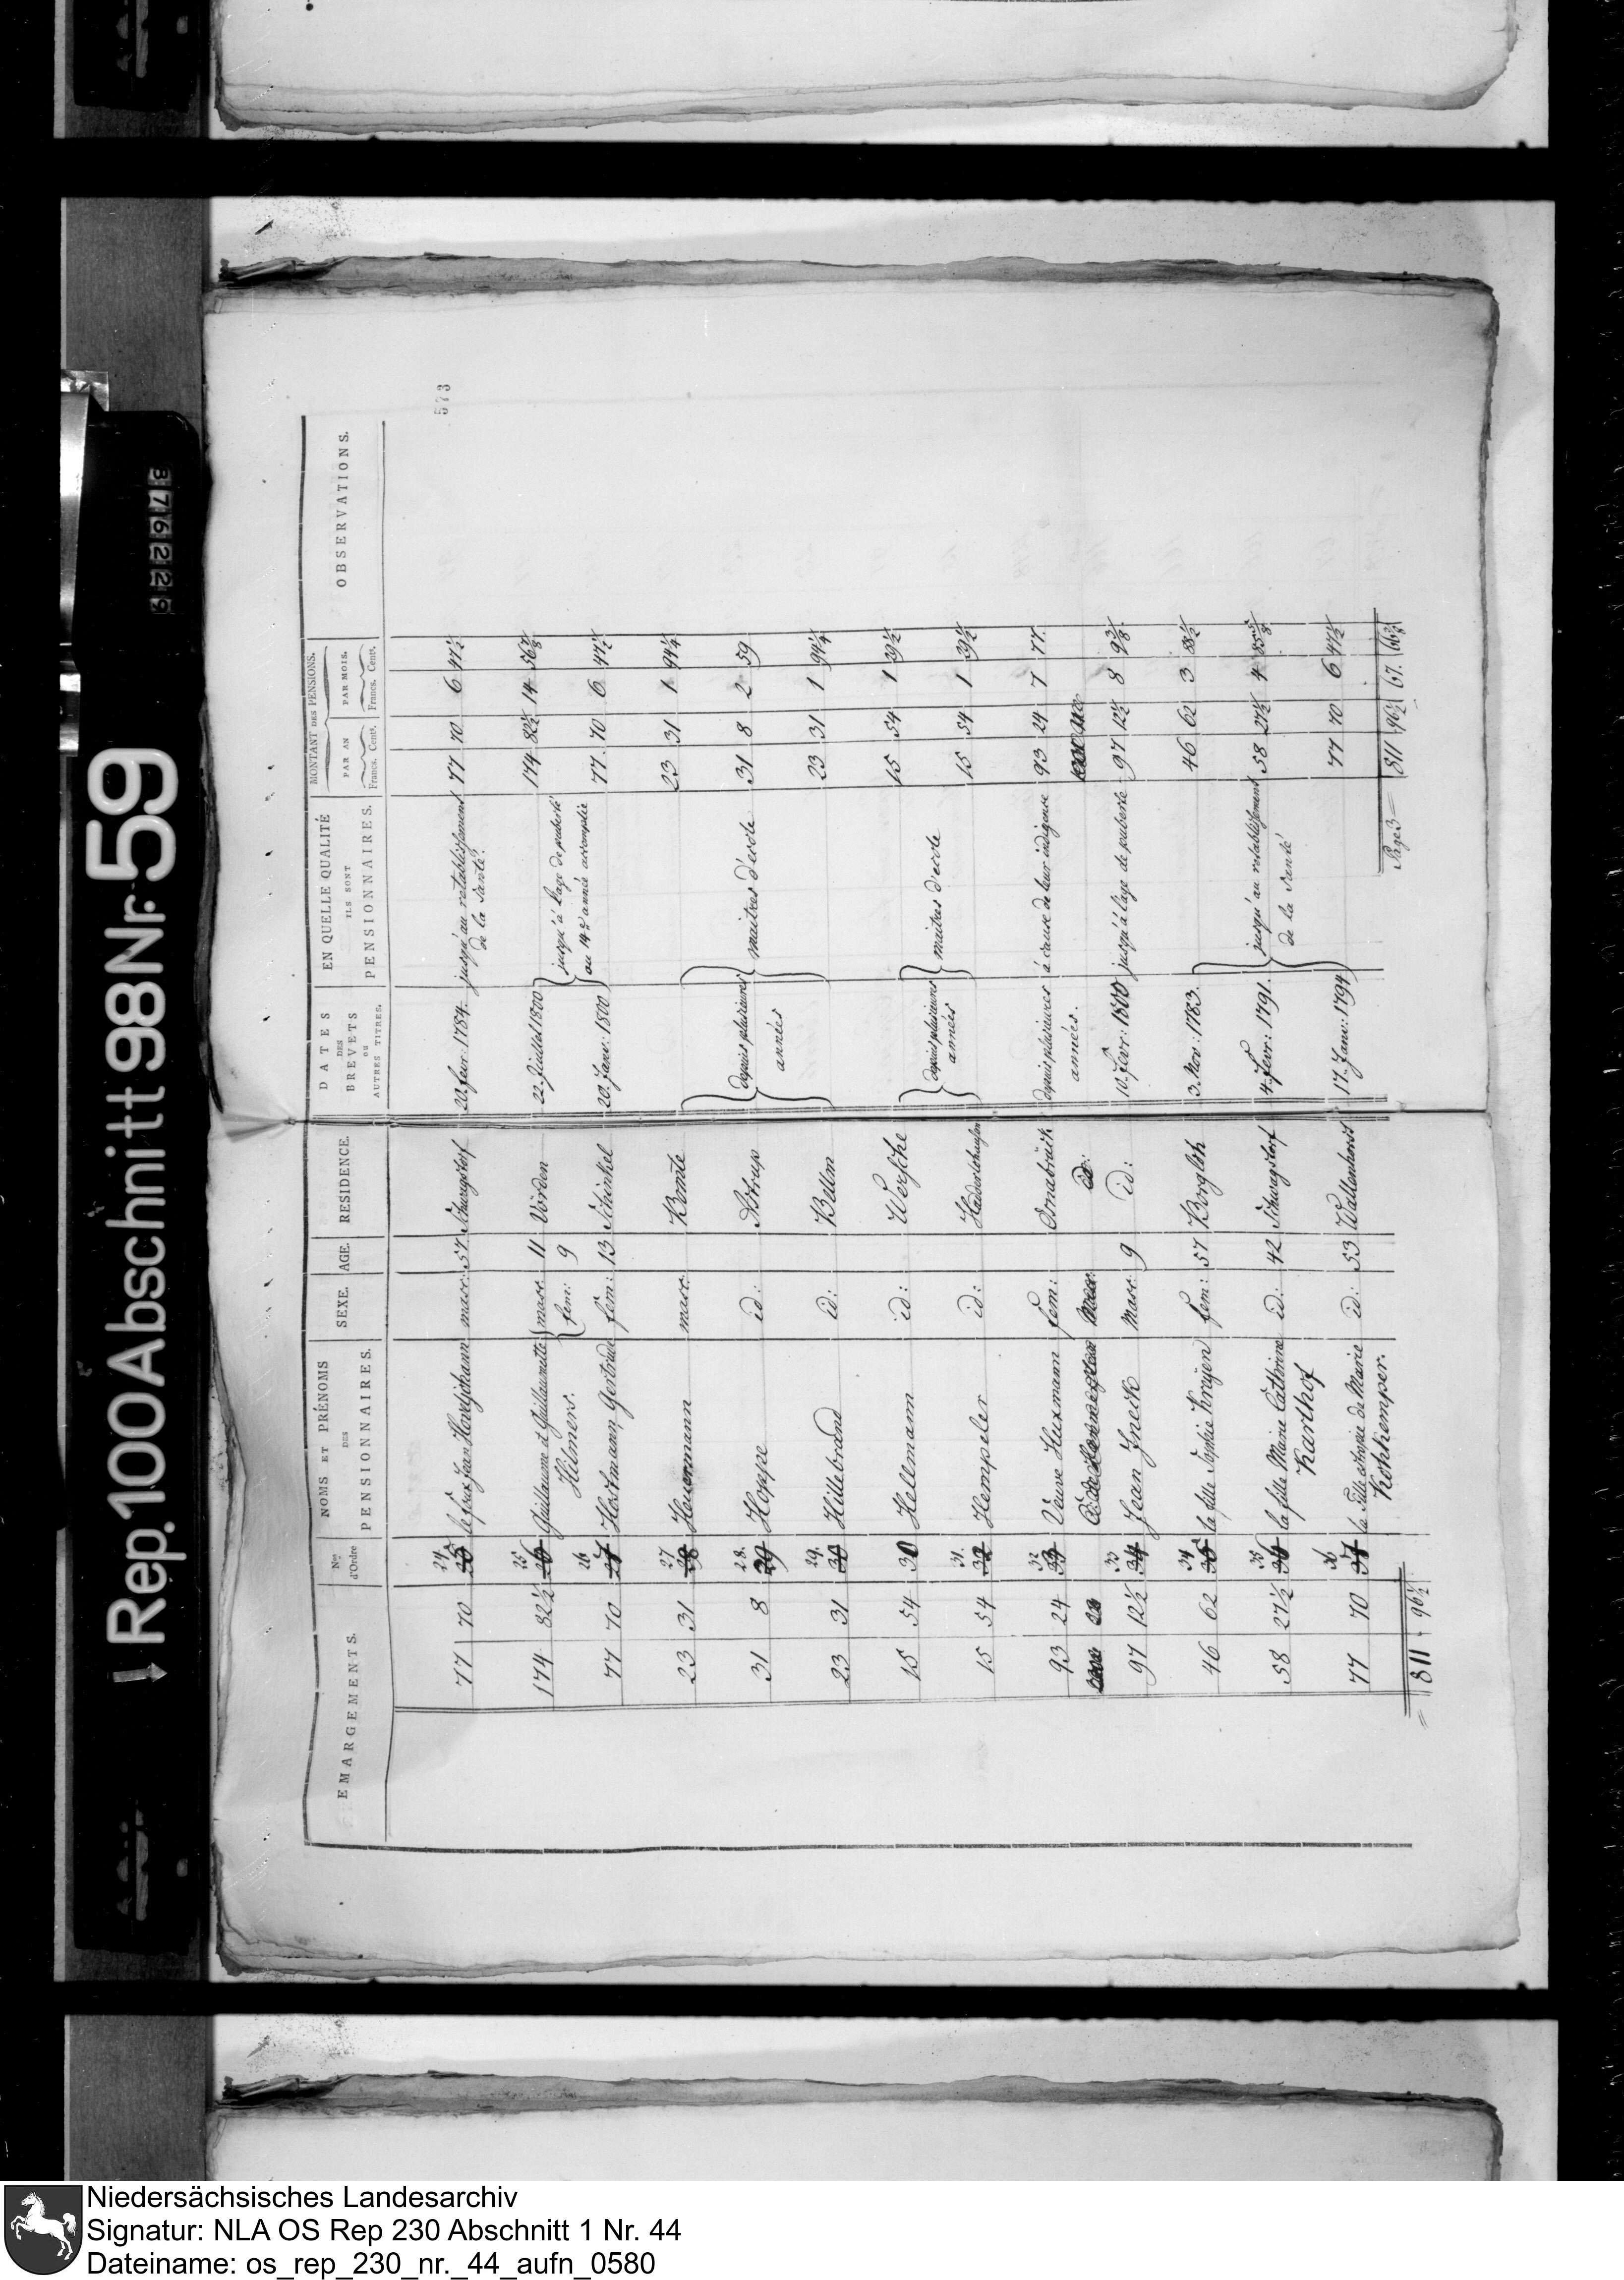 573
EMARGEMENTS. Nos d'Ordre NOMS ET PRÉNOMS DES PENSIONNAIRES. SEXE. AGE. RESIDENCE. DATES DES BREVETS OU AUTRES TITRES. EN QUELLE QUALITÉ ILS SONT PENSIONNAIRES. MONTANT DES PENSIONS. PAR AN Francs. Cents. PAR MOIS. Francs. Cents. OBSERVATIONS.
77 70 24. 25 Jean masc: 57 Schwagstorf 20. fevr: 1784. jusqu'au retablissement 77 70 6 47½
de la Santé.
174 82½ 25. 26 Guillaume et Guillaumette masc: 11 Vörden 22. Juillet 1800 jusqu'à l'age de puberté 174 82½ 14 56⅞
Hilmers. fem: 9 ou 14e année accomplie
77 70 26 27 Hostmann Gertrude fem: 13 Schinkel 20. Janv: 1800 77. 70 6 47½
23 31 27. 28 Heuermann masc: Kemte 23 31 1 94¼
31 8 28. 29 Hoppe id: Astrup depuis plusieurs années maitres d'ecole 31 8 2 59
23 31 29. 30 Hillebrand id: Bellm 23 31 1 94¼
15 54 30 Hellmann id: Wersche 15 54 1 29½
15 54 31. 32 Hempeler id: depuis plusieurs années maitres d'ecole 15 54 1 29½
93 24 32 33 Veuve Huxmann fem: Osnabrück depuis plusieures à cause de leur indigence 93 24 7 77.
id: années.
97 12½ 33 34 Jean Jneck Masc: 9 id: 10. fevr: 1800 jusqu'à l'age de puberte 97 12½ 8 9⅜
46 62 34. 35 la fille Sophie fem: 57 Borgloh 3. Nov: 1783. 46 62 3 88½
58 27½ 35 36 la fille Marie Cathrine id: 42 Schwagstorf 4. fevr: 1791. jusqu'au retablissement 58 27½ 4 85⅝
Karthof de la Santé
77 70 36. 37 la fille estropiée de Marie id: 53 Wallenhorst 17. Janv: 1794 77 70 6 47½
Kohkemper.
811 . 96½ Page 3 = 811 96½ 67. 66⅜
Rep. 100 A Abschnitt 98 Nr. 59
376229
Niedersächsisches Landesarchiv
Signatur: NLA OS Rep 230 Abschnitt 1 Nr. 44
Dateiname: os_rep_230_nr._44_aufn_0580